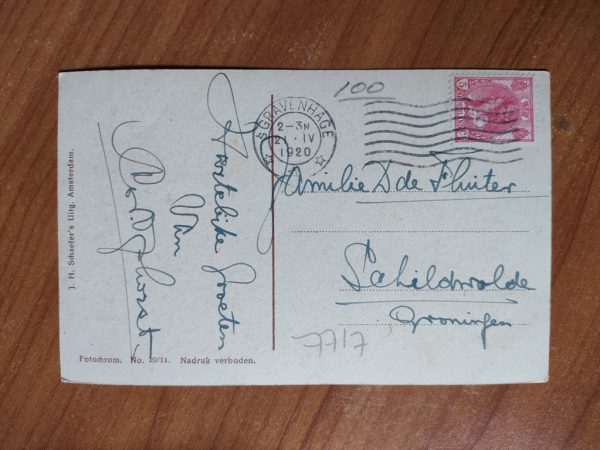 100
'SGRAVENHAGE
2-3N
21.IV
1920
Familie D de Fluiter
Schildwolde
Groningen
7717
Hartelijke Groeten
Van
J. H. Schaefer's Uitg. Amsterdam.
Fotochrom. No. 20/11. Nadruk verboden.